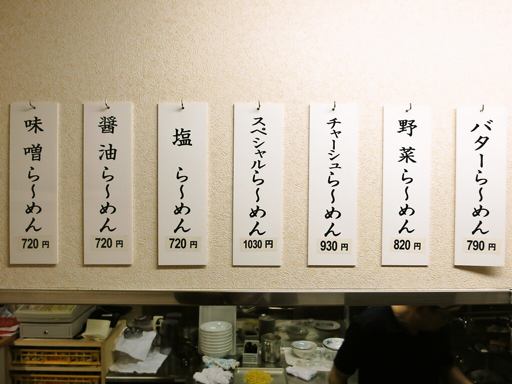 味噌ら〜めん
720円
醤油ら〜めん
720円
塩 ら〜めん
720円
スペシャルら〜めん
1030円
チャーシュら〜めん
930円
野菜ら〜めん
820円
バターら〜めん
790円